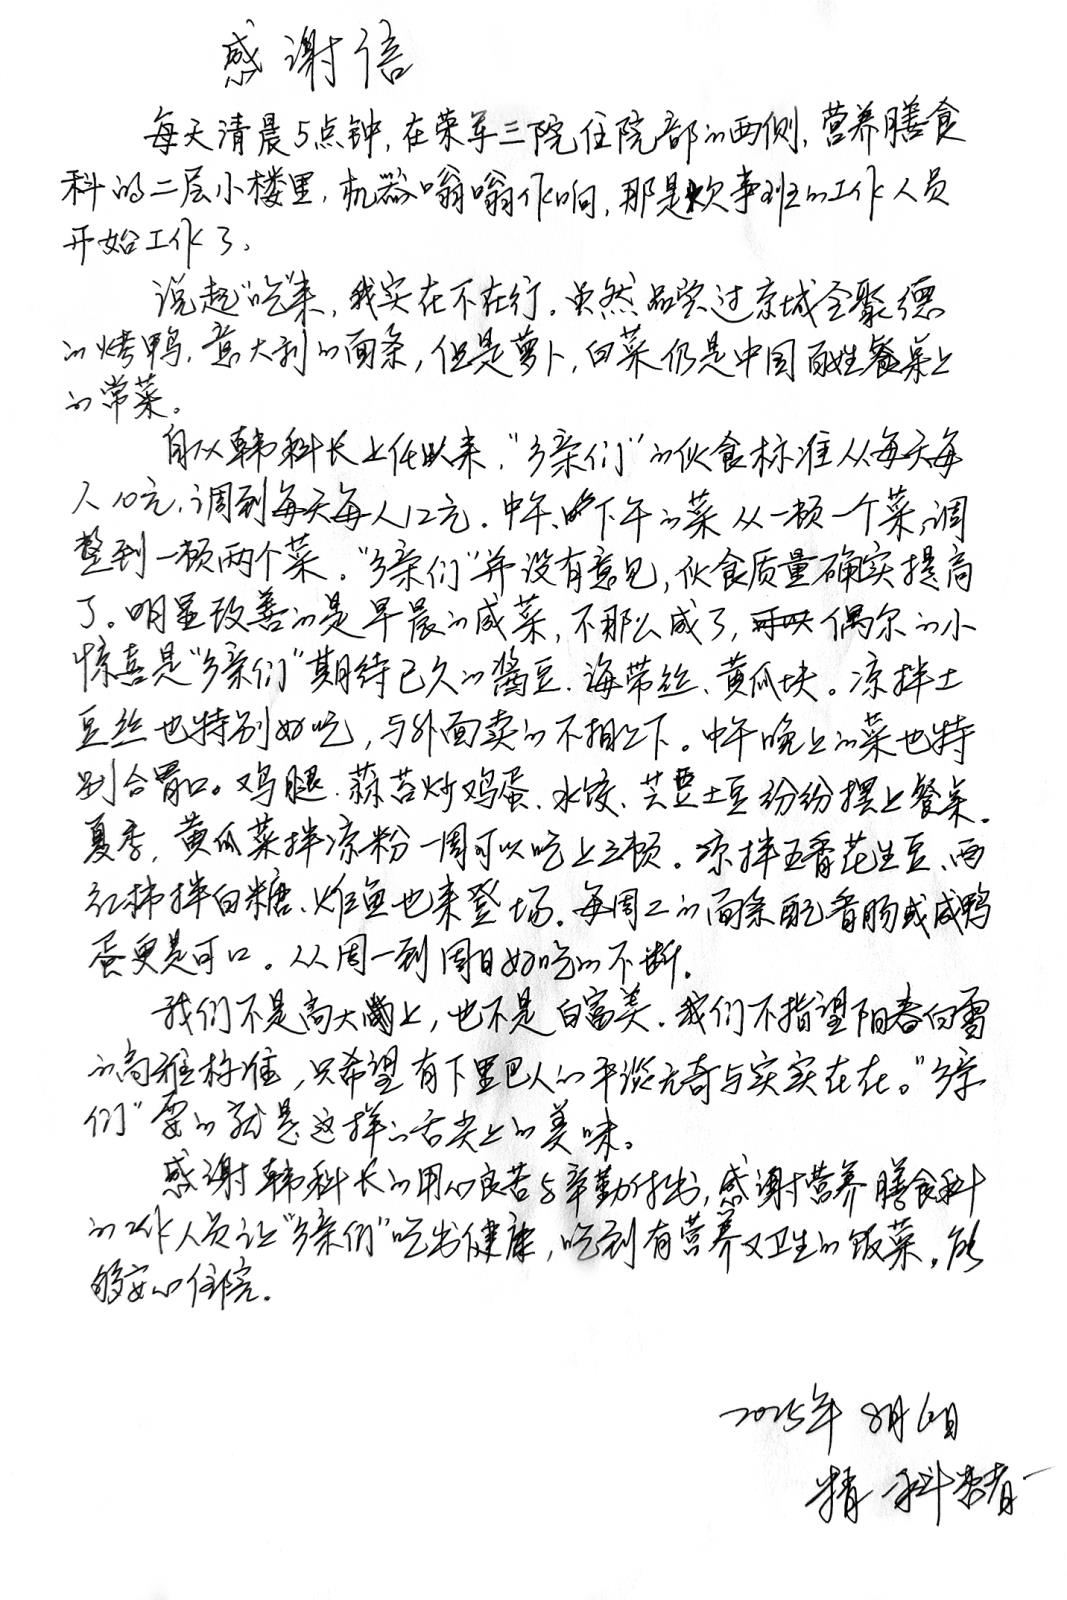 感谢信
每天清晨5点钟,在荣军三院住院部的西侧,营养膳食
科的二层小楼里,机器嗡嗡作响,那是炊事班的工作人员
开始工作了.
说起"吃"来,我实在不在行.虽然品尝过京城全聚德
的烤鸭,意大利的面条,但是萝卜,白菜仍是中国百姓餐桌上
的常菜。
自从韩科长上任以来,"乡亲们"的伙食标准从每天每
人10元,调到每天每人12元.中午、下午的菜从一顿一个菜,调
整到一顿两个菜."乡亲们"并没有意见,伙食质量确实提高
了。明显改善的是早晨的咸菜,不那么咸了,偶尔的小
惊喜是"乡亲们"期待已久的酱豆、海带丝、黄瓜块。凉拌土
豆丝也特别好吃,与外面卖的不相上下。中午晚上的菜也特
别合胃口。鸡腿、蒜苔炒鸡蛋、水饺、芸豆土豆纷纷摆上餐桌.
夏季,黄瓜菜拌凉粉一周可以吃上三顿。凉拌五香花生豆、西
红柿拌白糖、炸鱼也来登场.每周二的面条配香肠或咸鸭
蛋更是可口。从周一到周日好吃的不断.
我们不是高大尚上,也不是白富美.我们不指望阳春白雪
的高雅标准,只希望有下里巴人的平淡无奇与实实在在。"乡亲
们"要的就是这样的舌尖上的美味。
感谢韩科长的用心良苦与辛勤付出,感谢营养膳食科
的工作人员让"乡亲们"吃出健康,吃到有营养又卫生的饭菜.能
够安心住院.
2025年8月6日
精 科患者